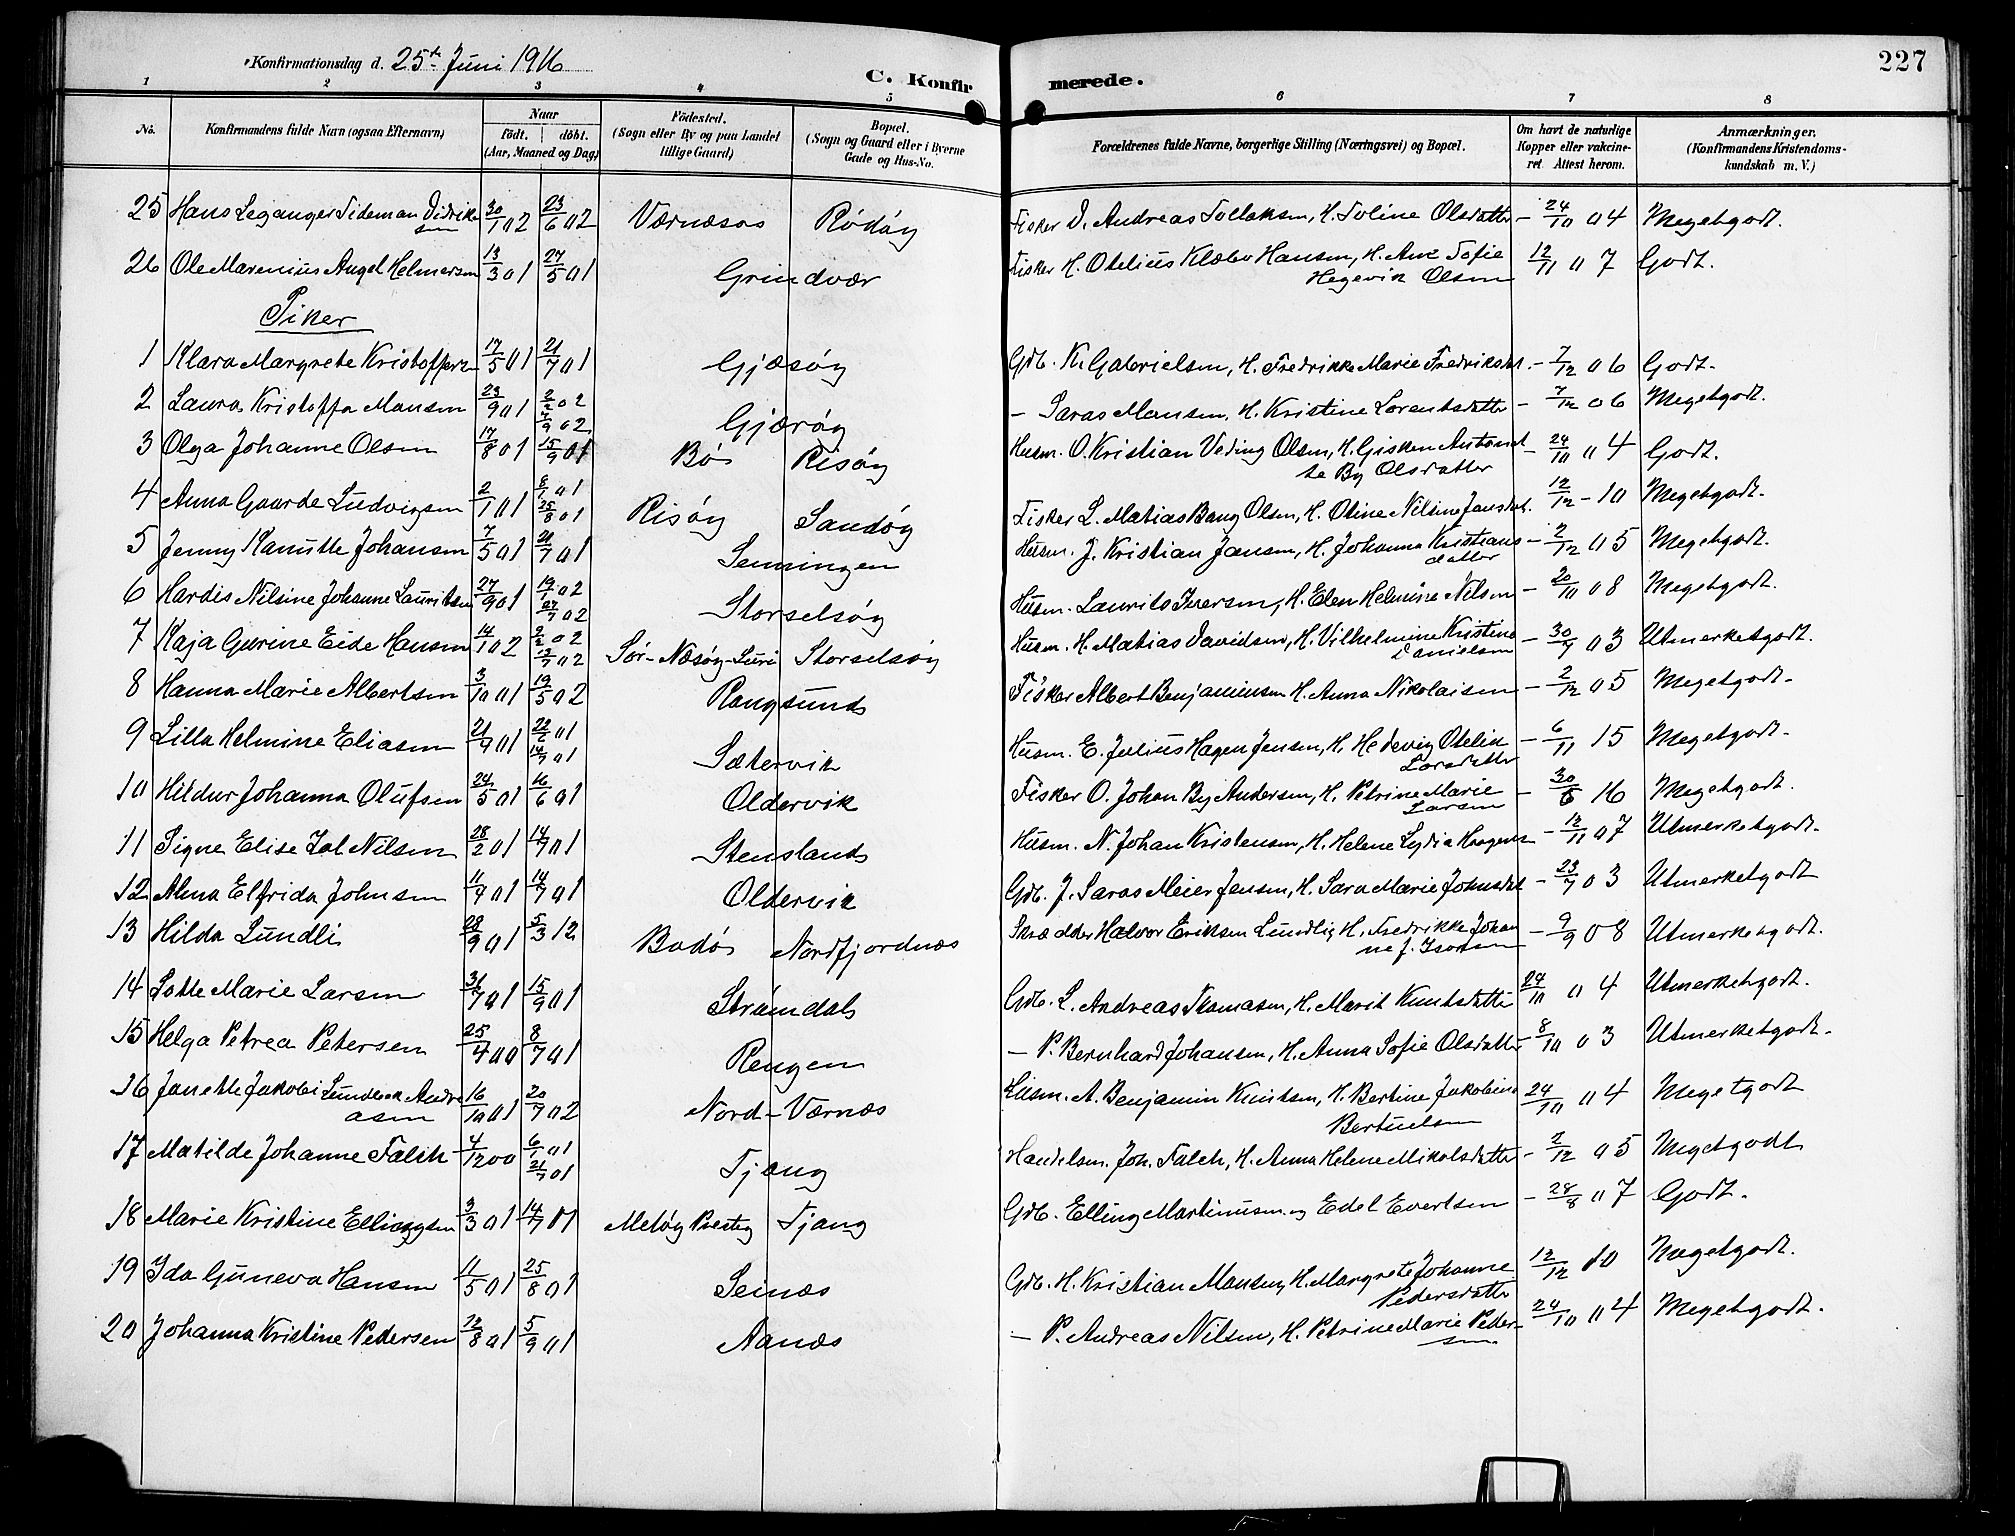 Konfirmationsdag d. 25de Juni 1916
C. Konfirmerede.
227
1 2 3 4 5 6 7 8
No.
Konfirmandens fulde Navn (ogsaa Efternavn)
Naar
födt. döbt.
(Aar, Maaned og Dag)
Födested.
(Sogn eller By og paa Landet
tillige Gaard)
Bopæl.
(Sogn og Gaard eller i Byerne
Gade og Hus-No.
Forældrenes fulde Navne, borgerlige Stilling (Næringsvei) og Bopæl.
Om havt de naturlige
Kopper eller vakcine-
ret. Attest herom.
Anmærkninger.
(Konfirmandens Kristendoms-
kundskab m. V.)
25 Hans Leganger Tideman Didriksen 30/1 02 23/6 02 Værnæsos Rödöy Fisker D. Andreas Tollaksen, H. Toline Olsdatter – 24/10 04 Megetgodt.
26 Ole Marenius Angel Helmersen 13/3 01 27/5 01 Grindvær Fisker H. Otelius Klæbo Hansen, H. Ane Sofie Hegevik Olsen 12/11 07 Godt.
Piker
1 Klara Margrete Kristoffers 17/5 01 21/7 01 Gjæsöy Gdb. K. Gabrielsen, H. Fredrikke Marie Fredriksdat. – 7/12 06 Godt.
2 Laura Kristoffa Monsen 23/9 01 2/2 02 7/9 02 Gjæröy – Saras Monsen, H. Kristine Lorentsdatter – 7/12 06 Megetgodt.
3 Olga Johanne Olsen 17/8 01 15/9 01 Bö Risöy Husm. O. Kristian Veding Olsen, H. Gisken Antonette By Olsdatter – 24/10 04 Godt.
4 Anna Gaarde Ludvigsen 2/1 01 8/1 01 25/8 01 Risöy Sandöy Fisker L. Matias Bang Olsen, H. Oline Nilsine Jensdat. 12/12 – 10 Megetgodt.
5 Jenny Kanutte Johansen 7/5 01 21/7 01 Senningen Husm. J. Kristian Jansen, H. Johanna Kristians datter – 2/12 05 Megetgodt.
6 Hardis Nilsine Johanne Lauritsen 27/9 01 19/1 02 27/7 02 Storselsöy Husm. Laurits Iversen, H. Elen Helmine Nilsen – 20/11 08 Megetgodt.
7 Kaja Gurine Eide Hansen 14/1 02 2/2 02 13/7 02 Sör-Næsöy-Luri Storselsöy Husm. H. Matias Davidsen, H. Vilhelmine Kristine Danielsen – 30/7 03 Utmerketgodt.
8 Hanna Marie Albertsen 3/10 01 19/5 02 Rangsunds Fisker Albert Benjaminsen H. Anna Nikolaisen – 2/12 05 Megetgodt.
9 Lilla Helmine Eliasen 21/1 01 22/2 01 14/7 01 Sætervik Husm. E. Julius Hagen Jensen, H. Hedevig Otelie Larsdatter – 6/11 15 Megetgodt.
10 Hildur Johanna Olufsen 24/5 01 16/6 01 Oldervik Fisker O. Johan By Andersen, H. Petrine Marie Larsen – 30/6 16 Megetgodt.
11 Signe Elise Nilsen 28/2 01 14/7 01 Stenslands Husm. N. Johan Kristensen, H. Helene Lydia – 12/11 07 Utmerketgodt.
12 Alma Elfrida Johnsen 11/4 01 14/7 01 Oldervik Gdb. J. Saras Meier Jensen, H. Sara Marie Johnsdat. – 23/7 03 Utmerketgodt
13 Hilda Lundli 28/9 01 5/3 12 Bodö Nordfjordnæs Skrædder Halvor Eriksen Lundli, H. Fredrikke Johanne J. – 9/9 08 Utmerketgodt.
14 Lotte Marie Larsen 31/7 01 15/9 01 Strömdals Gdb. L. Andreas Tomasen, H. Marit Knutsdatter 24/10 04 Utmerketgodt.
15 Helga Petrea Petersen 25/4 00 8/7 01 Rengen – P. Bernhard Johansen, H. Anna Sofie Olsdatter – 8/10 03 Utmerketgodt.
16 Janette Jakobi Andreasen 16/10 01 20/7 02 Nord-Værnæs Husm. A. Benjamin Knutsen, H. Bertine Jakobine Bertuelsen 24/10 04 Megetgodt
17 Matilde Johanne Falch 4/12 00 6/1 01 21/7 01 Tjong Handelsm. Joh. Falch, H. Anna Helene Mikalsdatter – 2/12 05 Megetgodt
18 Marie Kristine Ellingsen 3/3 01 14/7 01 Melöy Prestg Tjong Gdb. Elling Martinusen og Edel Evertsen – 28/8 07 Godt.
19 Ida Guneva Hansen 11/5 01 25/8 01 Seinæs Gdb. H. Kristian Monsen, H. Margrete Johanne Pedersdatter 12/12 10 Megetgodt.
20 Johanna Kristine Pedersen 12/8 01 5/9 01 Aanæs – P. Andreas Nilsen, H. Petrine Marie Pedersen 24/10 04 Megetgodt.